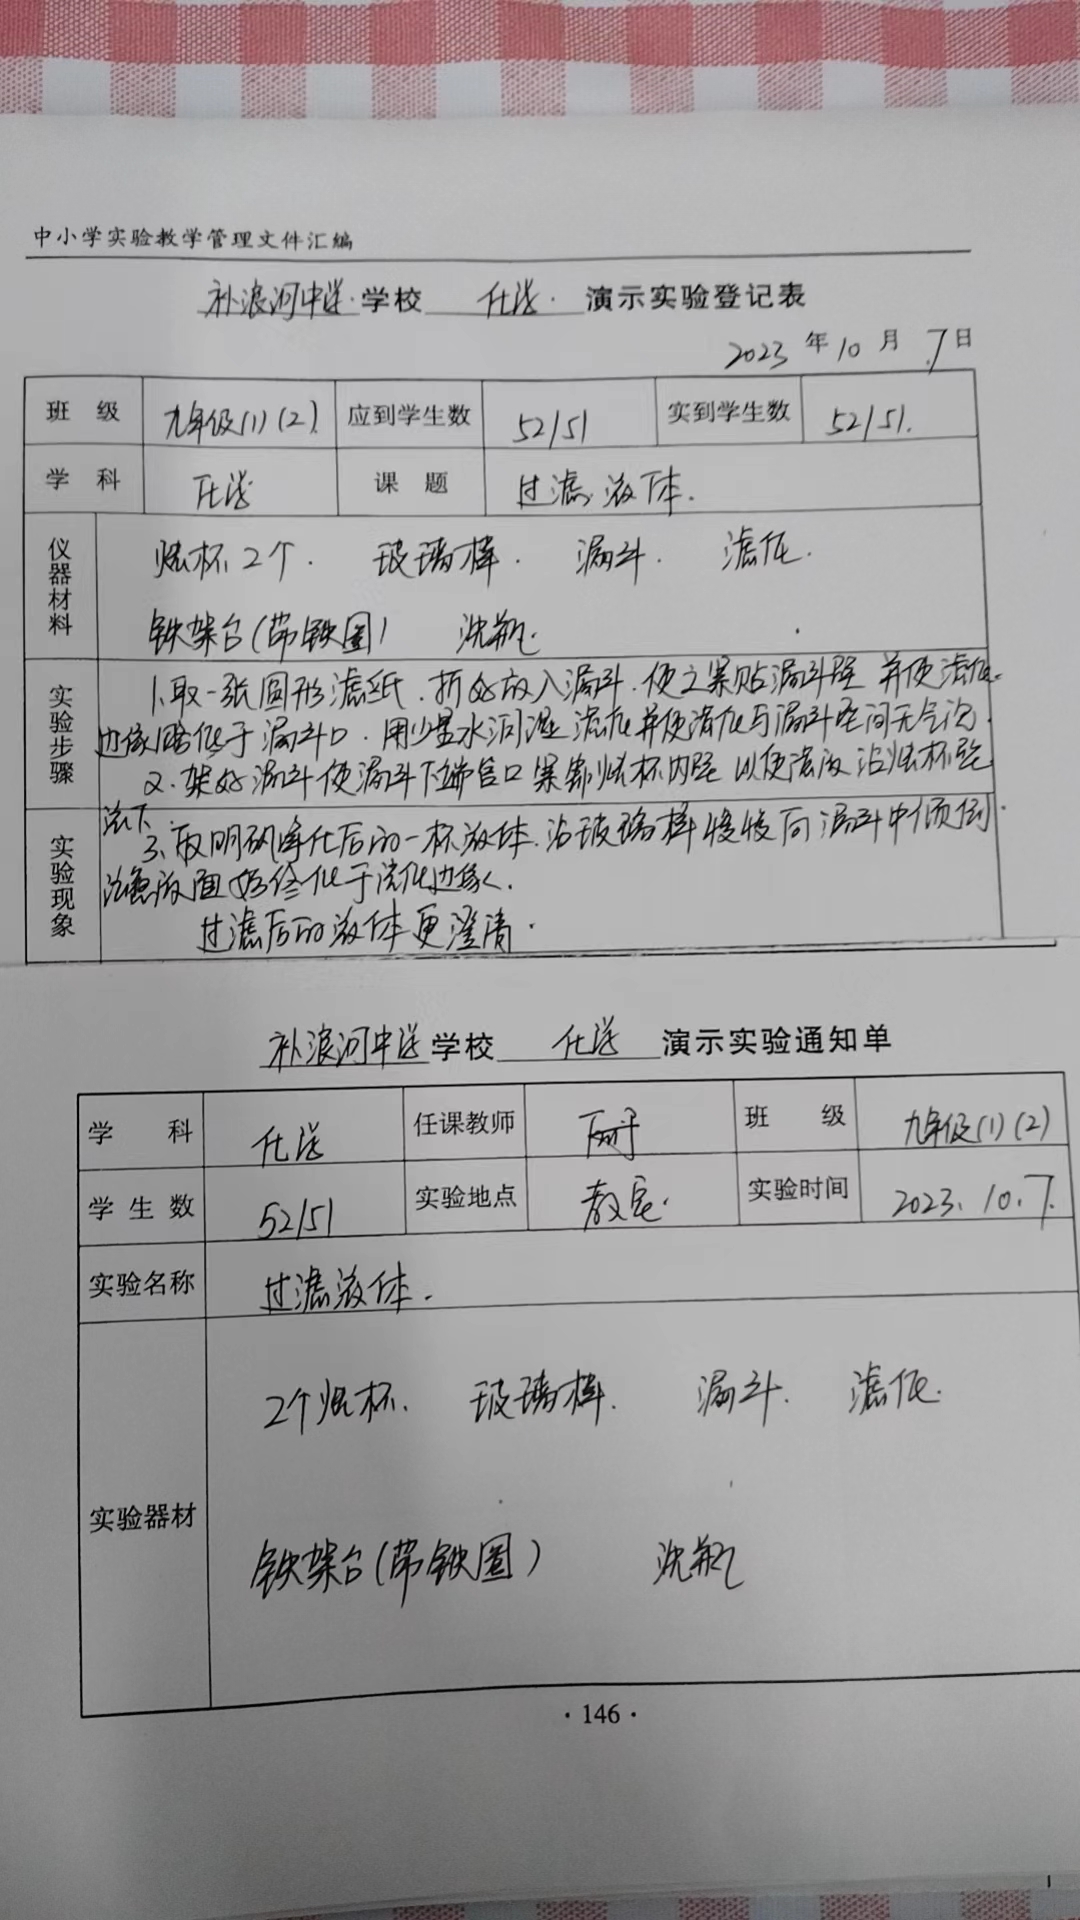 中小学实验教学管理文件汇编
补浪河中学学校 化学 演示实验登记表
2023年10月7日
班级 九年级(1)(2) 应到学生数 52/51 实到学生数 52/51
学科 化学 课题 过滤液体.
仪器材料 烧杯2个. 玻璃棒. 漏斗. 滤纸.
铁架台(带铁圈) 洗瓶.
实验步骤 1.取一张圆形滤纸.折好放入漏斗.使之紧贴漏斗壁 并使滤纸
边缘略低于漏斗口.用少量水润湿滤纸并使滤纸与漏斗壁间无气泡.
2.架好漏斗使漏斗下端管口紧靠烧杯内壁 以便滤液沿烧杯壁
流下.
实验现象 3.取明矾净化后的一杯液体.沿玻璃棒慢慢向漏斗中倾倒
注意液面始终低于滤纸边缘.
过滤后的液体更澄清.
补浪河中学学校 化学 演示实验通知单
学科 化学 任课教师 班级 九年级(1)(2)
学生数 52/51 实验地点 教室. 实验时间 2023.10.7.
实验名称 过滤液体.
2个烧杯. 玻璃棒. 漏斗. 滤纸.
实验器材
铁架台(带铁圈) 洗瓶
·146·